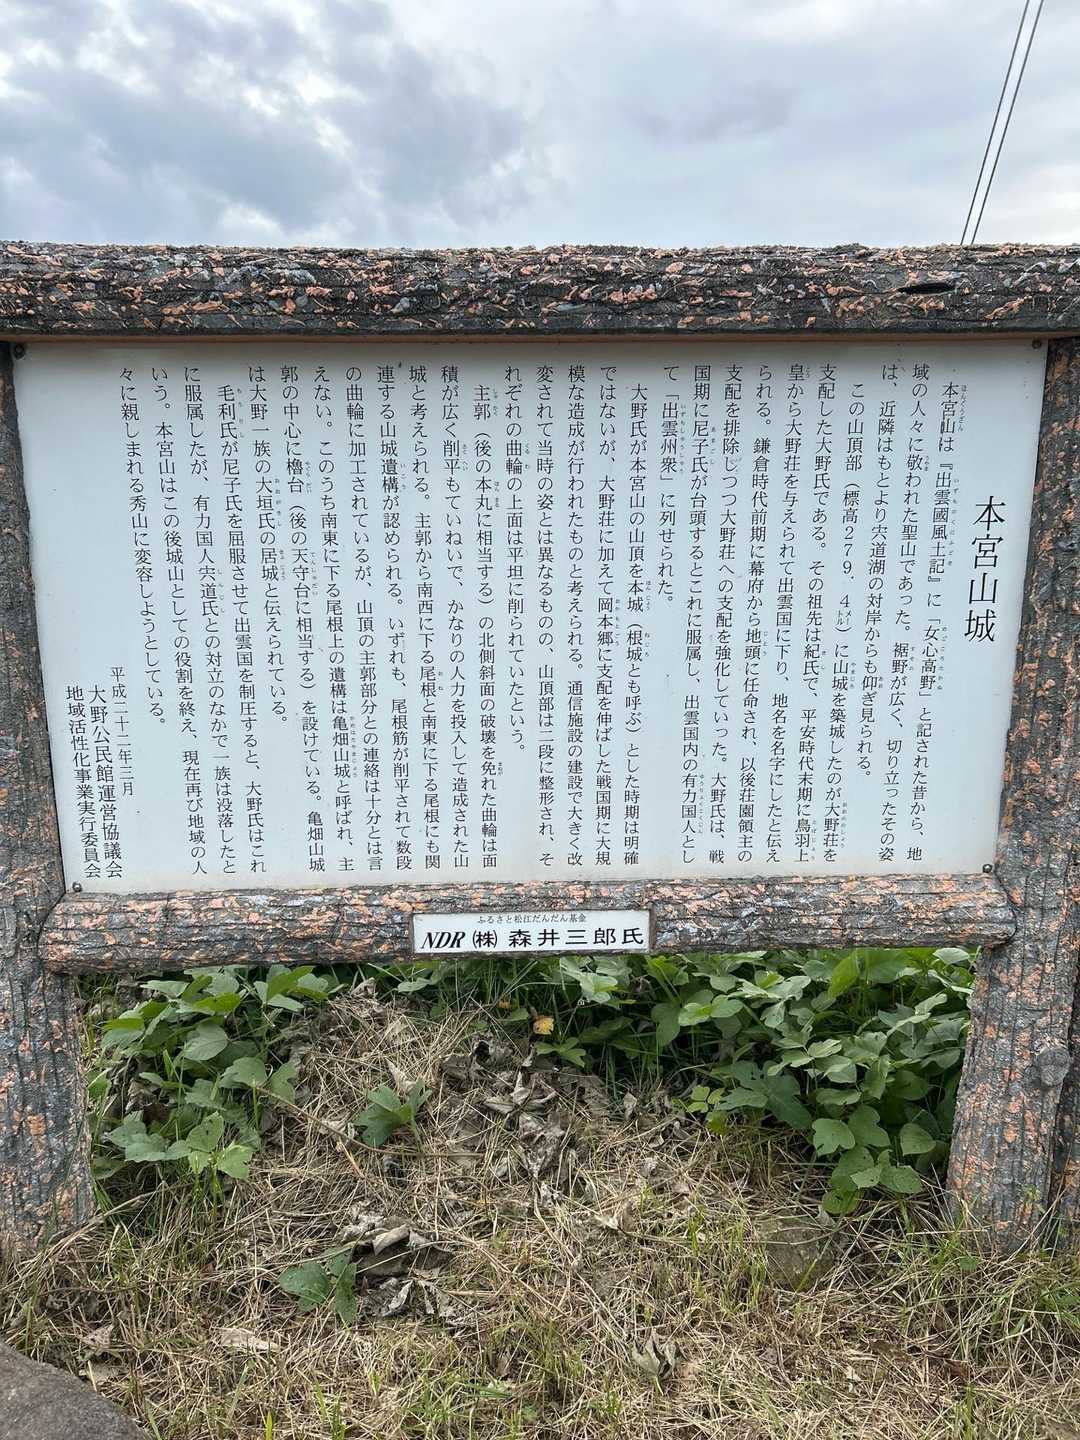 本宮山城
本宮山は『出雲國風土記』に「女心高野」と記された昔から、地
域の人々に敬われた聖山であった。裾野が広く、切り立ったその姿
は、近隣はもとより宍道湖の対岸からも仰ぎ見られる。
この山頂部（標高２７９．４メートル）に山城を築城したのが大野荘を
支配した大野氏である。その祖先は紀氏で、平安時代末期に鳥羽上
皇から大野荘を与えられて出雲国に下り、地名を名字にしたと伝え
られる。鎌倉時代前期に幕府から地頭に任命され、以後荘園領主の
支配を排除しつつ大野荘への支配を強化していった。大野氏は、戦
国期に尼子氏が台頭するとこれに服属し、出雲国内の有力国人とし
て「出雲州衆」に列せられた。
大野氏が本宮山の山頂を本城（根城とも呼ぶ）とした時期は明確
ではないが、大野荘に加えて岡本郷に支配を伸ばした戦国期に大規
模な造成が行われたものと考えられる。通信施設の建設で大きく改
変されて当時の姿とは異なるものの、山頂部は二段に整形され、そ
れぞれの曲輪の上面は平坦に削られていたという。
主郭（後の本丸に相当する）の北側斜面の破壊を免れた曲輪は面
積が広く削平もていねいで、かなりの人力を投入して造成された山
城と考えられる。主郭から南西に下る尾根と南東に下る尾根にも関
連する山城遺構が認められる。いずれも、尾根筋が削平されて数段
の曲輪に加工されているが、山頂の主郭部分との連絡は十分とは言
えない。このうち南東に下る尾根上の遺構は亀畑山城と呼ばれ、主
郭の中心に櫓台（後の天守台に相当する）を設けている。亀畑山城
は大野一族の大垣氏の居城と伝えられている。
毛利氏が尼子氏を屈服させて出雲国を制圧すると、大野氏はこれ
に服属したが、有力国人宍道氏との対立のなかで一族は没落したと
いう。本宮山はこの後城山としての役割を終え、現在再び地域の人
々に親しまれる秀山に変容しようとしている。
平成二十二年三月
大野公民館運営協議会
地域活性化事業実行委員会
ふるさと松江だんだん基金
NDR ㈱ 森井三郎氏